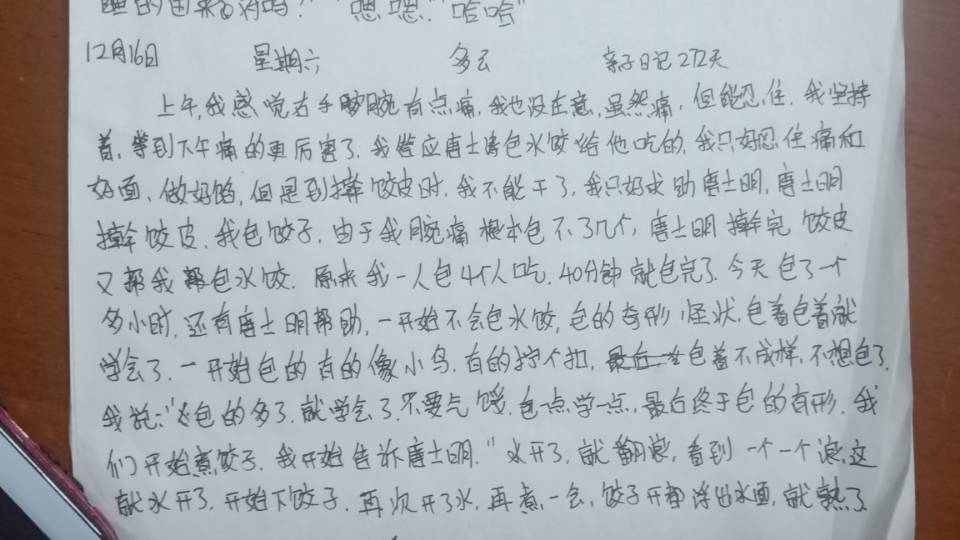 睡的由来
"嗯.嗯." "哈哈"
12月16日 星期六 多云 亲子日记272天
上午,我感觉右手腕有点痛,我也没在意,虽然痛,但能忍住.我坚持
着,等到下午痛的更厉害了.我答应唐士涛包水饺给他吃的,我只好忍住痛和
好面,做好馅,但是到擀饺皮时,我不能干了,我只好求助唐士明,唐士明
擀饺皮.我包饺子.由于我腕痛根本包不了几个,唐士明擀完饺皮
又帮我包水饺.原来我一人包4个人吃.40分钟就包完了.今天包了一个
多小时,还有唐士明帮助,一开始不会包水饺,包的奇形怪状.包着包着就
学会了.一开始包的有的像小鸟.有的拧个扣,包着不成样,不想包了.
我说:"包的多了.就学会了.不要气馁.包一点学一点,最后终于包的有形.我
们开始煮饺子.我开始告诉唐士明."水开了,就翻浪,看到一个一个浪,这
就水开了.开始下饺子.再次开了水,再煮一会,饺子开都浮出水面,就熟了.